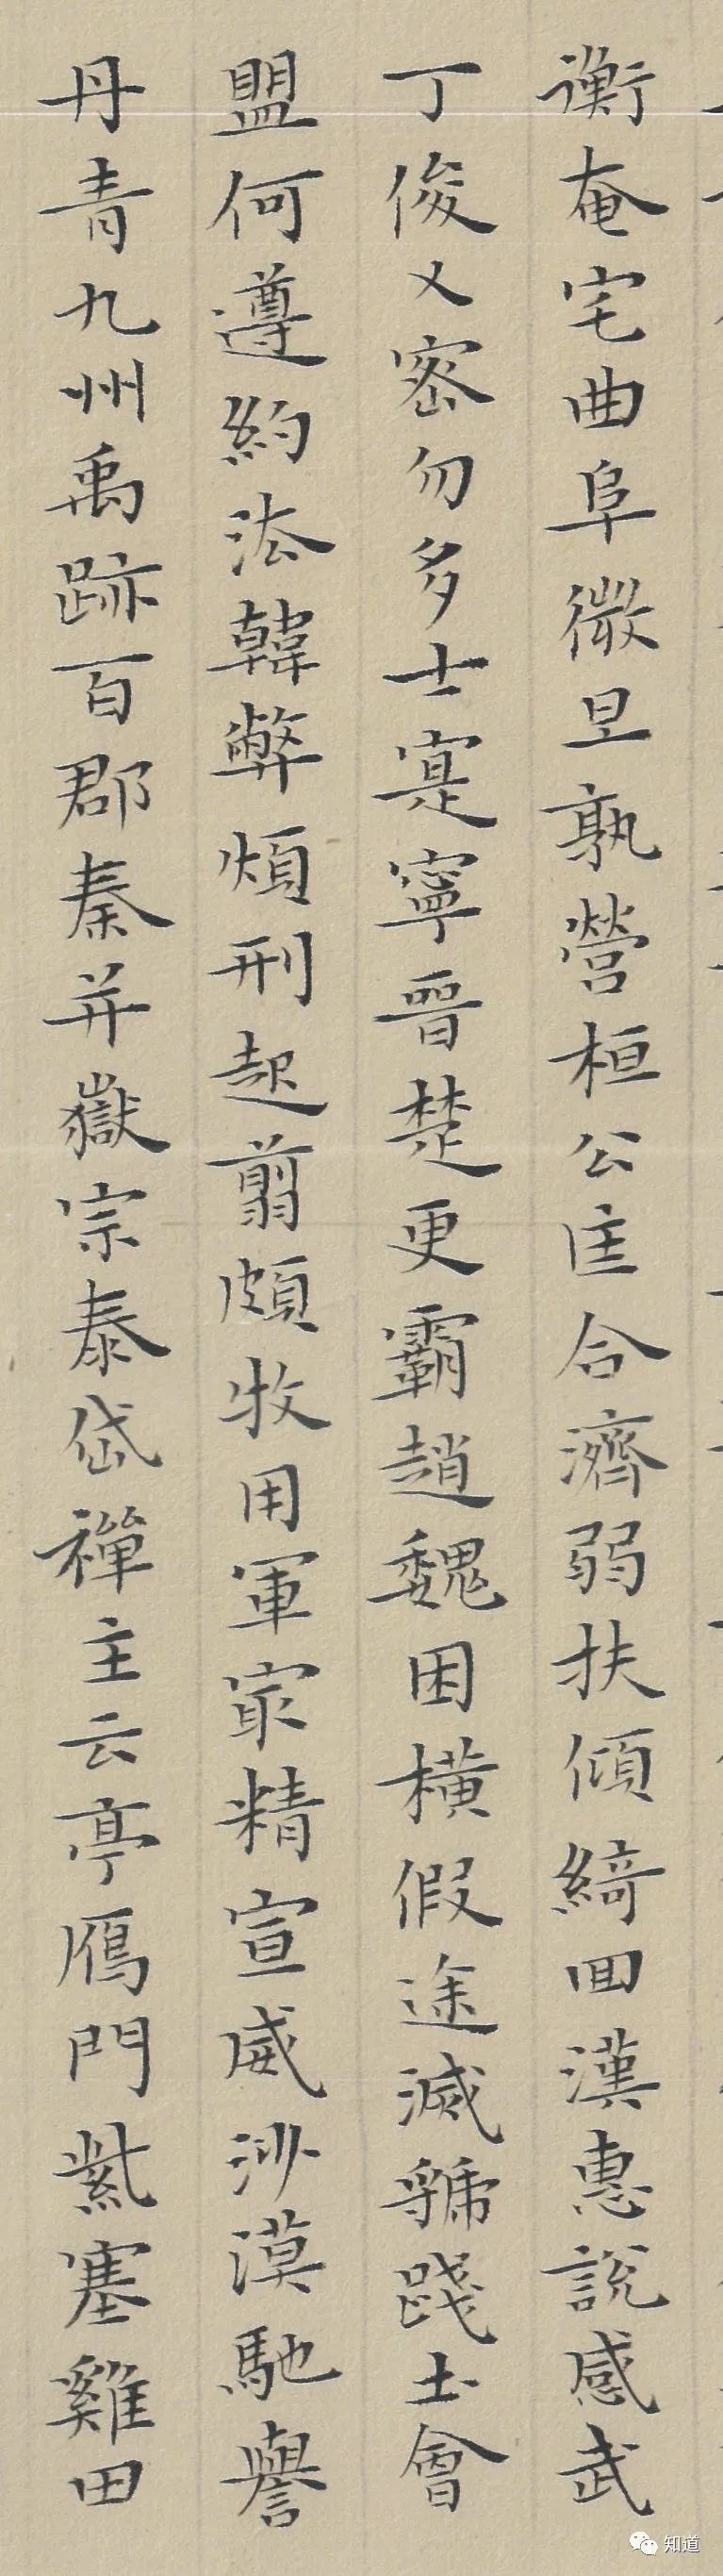 衡奄宅曲阜微旦孰營桓公匡合濟弱扶傾綺回漢惠說感武
丁俊乂密勿多士寔寧晉楚更霸趙魏困橫假途滅虢踐土會
盟何遵約法韓弊煩刑起翦頗牧用軍最精宣威沙漠馳譽
丹青九州禹跡百郡秦并嶽宗泰岱禪主云亭鴈門紫塞雞田
知道